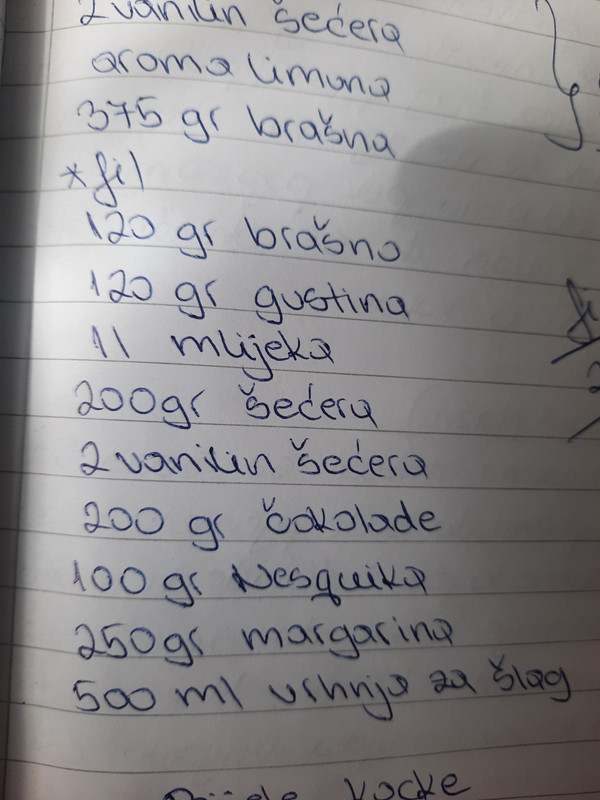 2 vanilin šećera
aroma limuna
375 gr brašna
*fil
120 gr brašno
120 gr gustina
1l mlijeka
200gr šećera
2 vanilin šećera
200 gr čokolade
100 gr Nesquika
250gr margarina
500 ml vrhnja za šlag
kocke